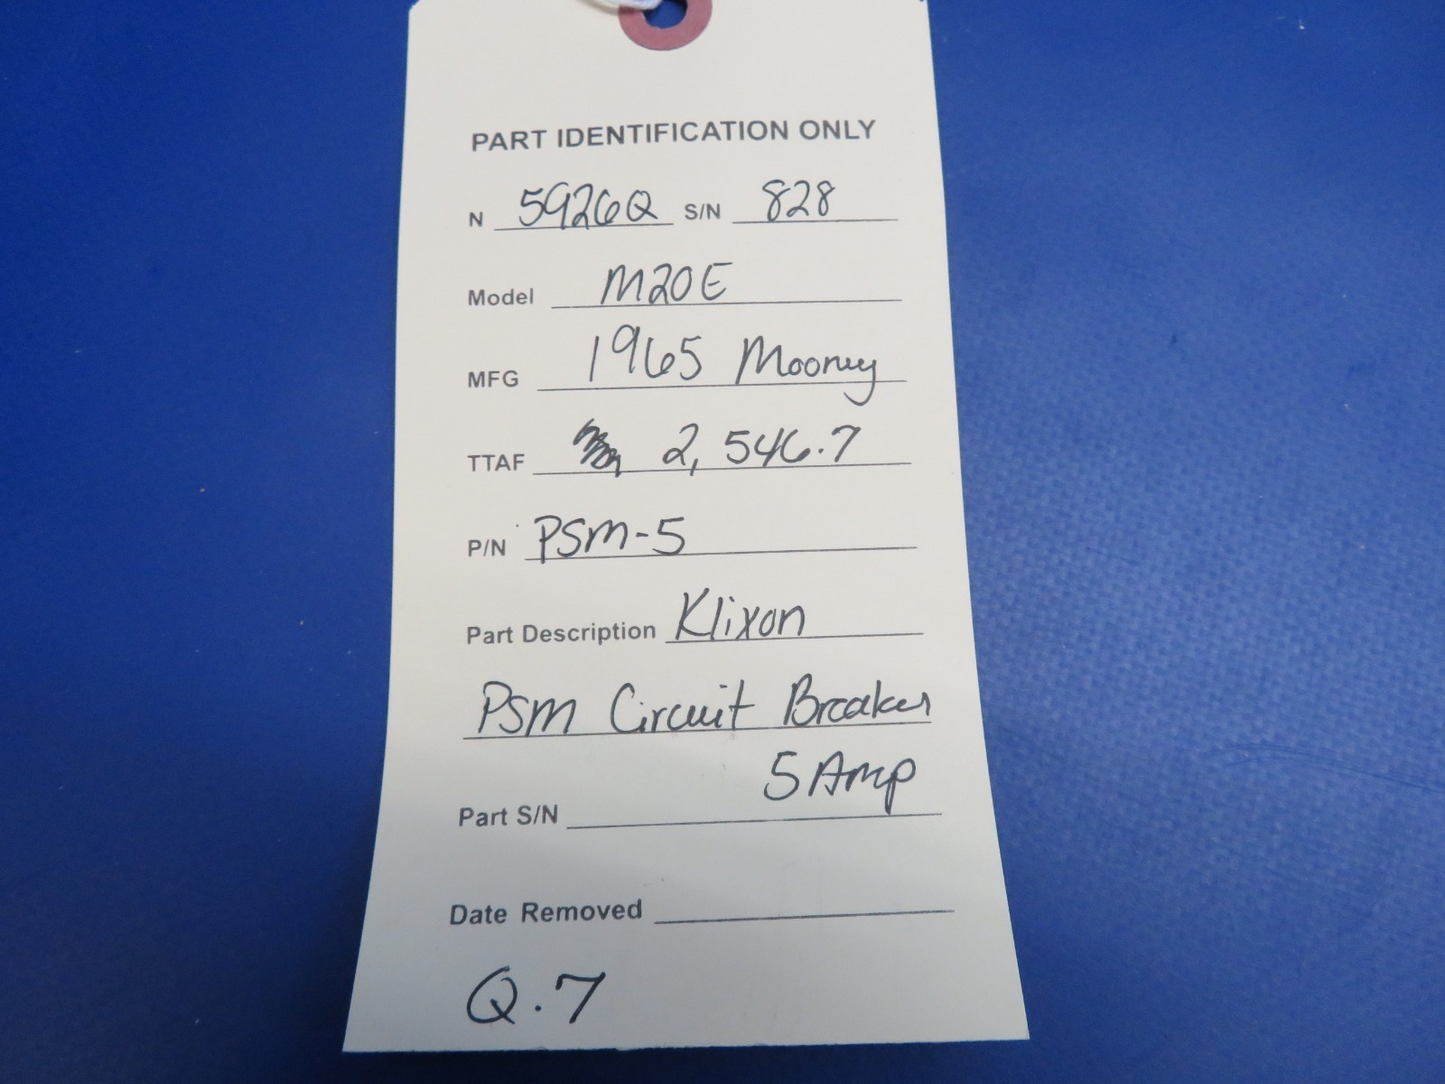 PART IDENTIFICATION ONLY
N 5926Q S/N 828
Model M20E
MFG 1965 Mooney
TTAF 2,546.7
P/N PSM-5
Part Description Klixon
PSM Circuit Breaker
5 Amp
Part S/N
Date Removed
Q.7